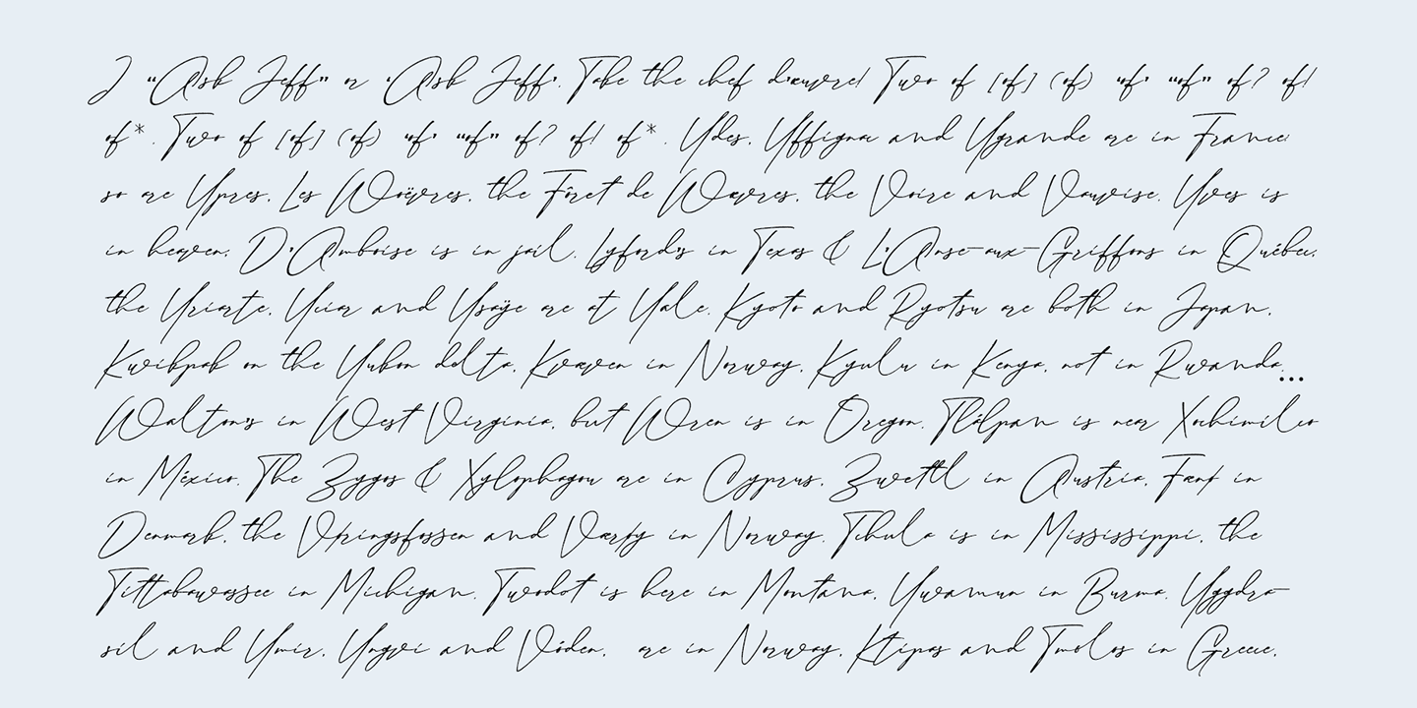 I “Ask Jeff” or ‘Ask Jeff’. Take the chef d’œuvre! Two of [of] (of) ‘of’ “of” of? of!
of*. Two of [of] (of) ‘of’ “of” of? of! of*. Ydes, Yffignac and Ygrande are in France:
so are Ypres, Les Woëvres, the Fôret de Wœvres, the Voire and Vauvise. Yves is
in heaven, D’Amboise is in jail. Lyford’s in Texas & L’Anse-aux-Griffons in Québec,
the Yriarte, Yciar and Ysaÿe are at Yale. Kyoto and Ryotsu are both in Japan,
Kwikpak on the Yukon delta, Kvæven in Norway, Kyulu in Kenya, not in Rwanda.…
Walton’s in West Virginia, but Wren is in Oregon. Tlálpan is near Xochimilco
in México. The Zygos & Xylophagou are in Cyprus, Zwettl in Austria, Fænø in
Denmark, the Vøringsfossen and Værøy in Norway. Tchula is in Mississippi, the
Tittabawassee in Michigan. Twodot is here in Montana, Ywamun in Burma, Yggdra-
sil and Ymir, Yngvi and Vóden, are in Norway, Ktipas and Tmolos in Greece,